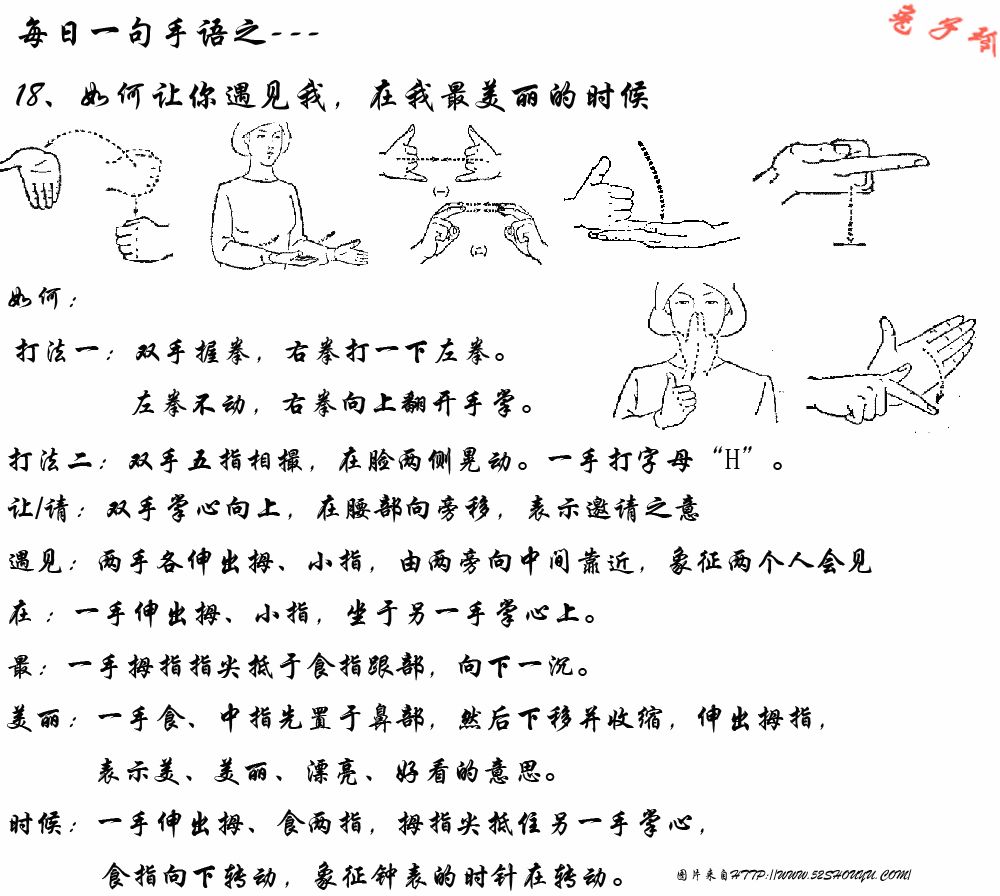 每日一句手语之---
18、如何让你遇见我，在我最美丽的时候
(一)
(二)
如何：
打法一：双手握拳，右拳打一下左拳。
左拳不动，右拳向上翻开手掌。
打法二：双手五指相撮，在脸两侧晃动。一手打字母“H”。
让/请：双手掌心向上，在腰部向旁移，表示邀请之意
遇见：两手各伸出拇、小指，由两旁向中间靠近，象征两个人会见
在：一手伸出拇、小指，坐于另一手掌心上。
最：一手拇指指尖抵于食指跟部，向下一沉。
美丽：一手食、中指先置于鼻部，然后下移并收缩，伸出拇指，
表示美、美丽、漂亮、好看的意思。
时候：一手伸出拇、食两指，拇指尖抵住另一手掌心，
食指向下转动，象征钟表的时针在转动。
图片来自HTTP://WWW.52SHOUYU.COM/